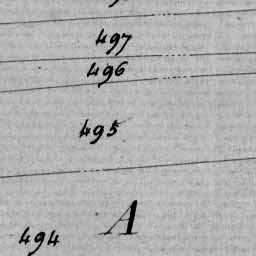 497
496
495
A
494